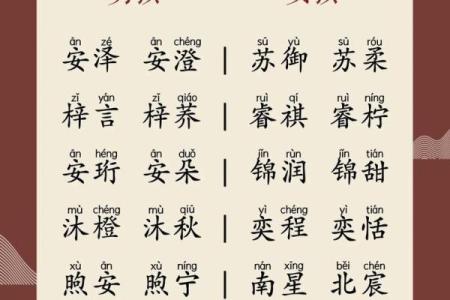 ān zé ān chéng sū yù sū róu
安泽 安澄 | 苏御 苏柔
zǐ yán zǐ qiáo ruì qí ruì níng
梓言 梓荞 | 睿祺 睿柠
ān héng ān duǒ jǐn rùn jǐn tián
安珩 安朵 | 锦润 锦甜
mù chéng mù qiū yì chéng yì tián
沐橙 沐秋 | 奕程 奕恬
xù ān xù níng nán xīng běi chén
煦安 煦宁 | 南星 北宸